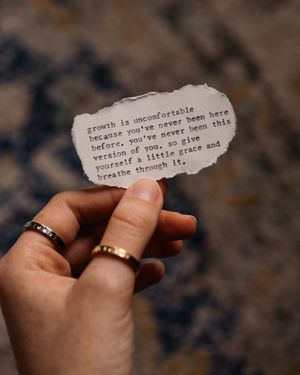 growth is uncomfortable
because you've never been here
before. you've never been this
version of you. so give
yourself a little grace and
breathe through it.